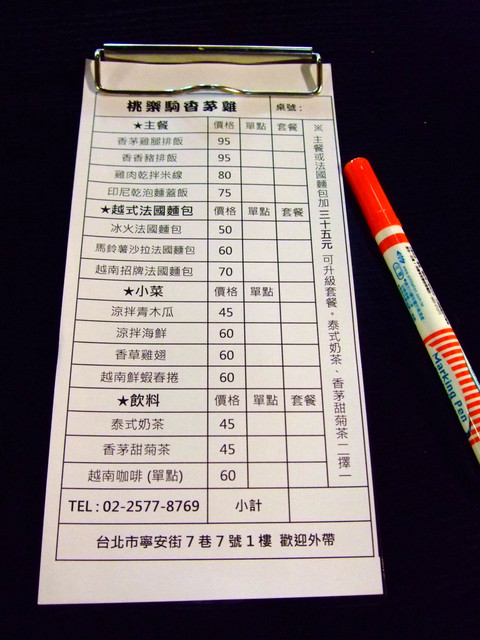 桃樂駒香茅雞 桌號:
★主餐 價格 單點 套餐
香茅雞腿排飯 95
香香豬排飯 95
雞肉乾拌米線 80
印尼乾泡麵蓋飯 75
★越式法國麵包 價格 單點 套餐
冰火法國麵包 50
馬鈴薯沙拉法國麵包 60
越南招牌法國麵包 70
★小菜 價格 單點
涼拌青木瓜 45
涼拌海鮮 60
香草雞翅 60
越南鮮蝦春捲 60
★飲料 價格 單點 套餐
泰式奶茶 45
香茅甜菊茶 45
越南咖啡 (單點) 60
※ 主餐或法國麵包加三十五元 可升級套餐。泰式奶茶、香茅甜菊茶二擇一
TEL : 02-2577-8769 小計
台北市寧安街 7 巷 7 號 1 樓 歡迎外帶
Marking Pen